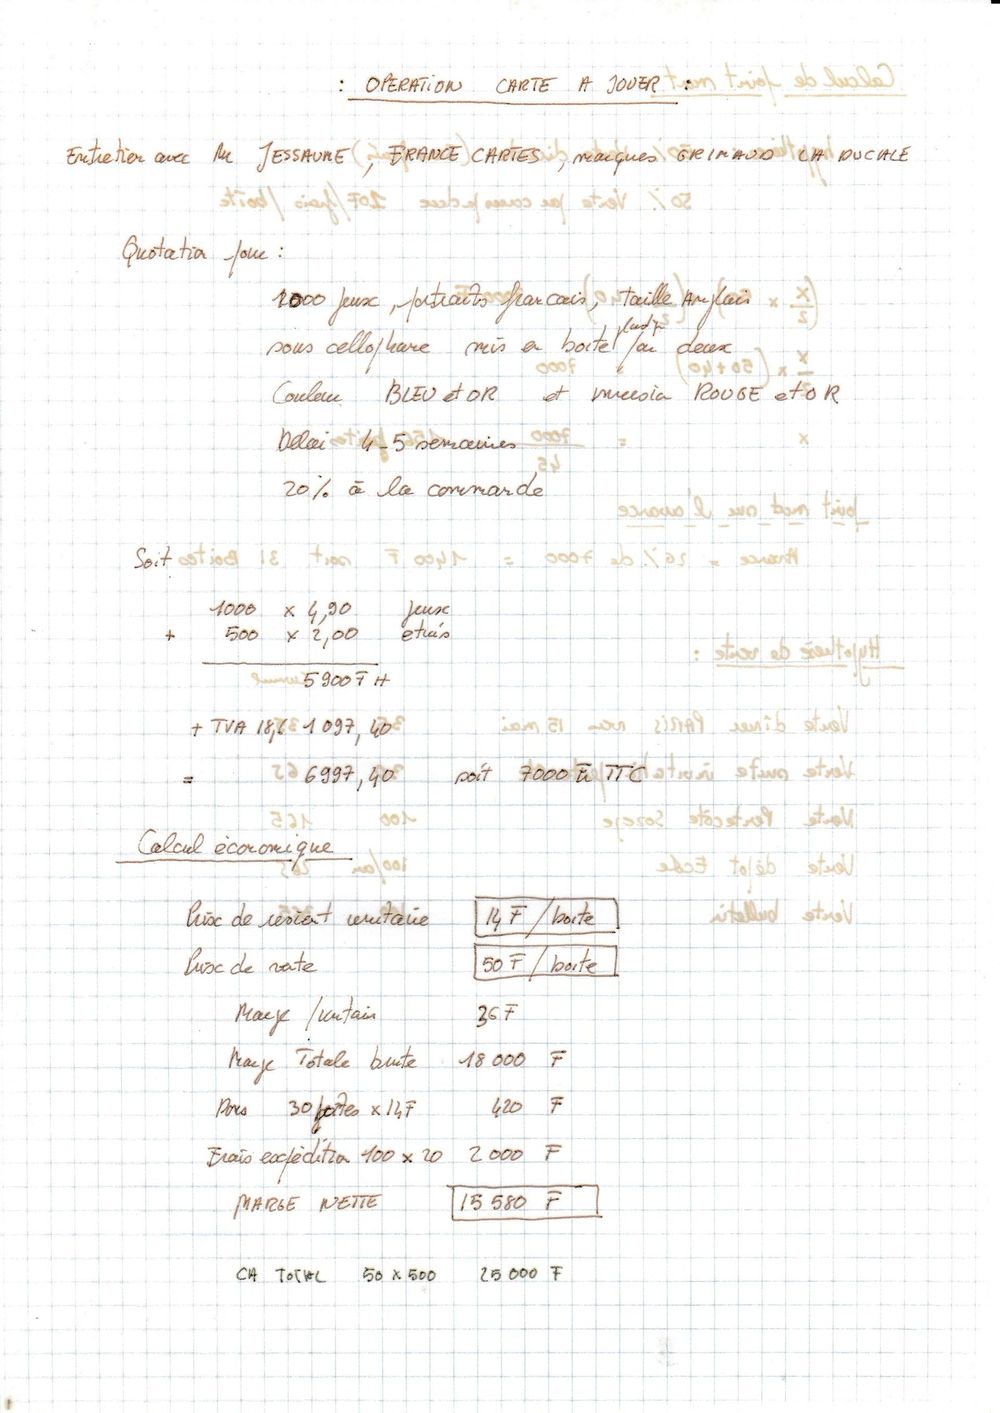 : OPERATION CARTE A JOUER :
Entretien avec Mr JESSAUME, FRANCE CARTES, marques GRIMAUD LA DUCALE
Quotation pour :
1000 jeux, portraits francais, taille Anglais
sous cellophane mis en boite par deux
Couleur BLEU et OR et ROUGE et OR
Delai 4-5 semaines
20% à la commande
Soit
1000 x 4,90 jeux
+ 500 x 2,00 etuis
5900 F H
+ TVA 18,6 1 097,40
= 6997,40 soit 7000 F TTC
Calcul économique
Prix de revient unitaire 14 F / boite
Prix de vente 50 F / boite
Marge / unitair 36 F
Marge Totale brute 18 000 F
30 x 14F 420 F
Frais expédition 100 x 20 2 000 F
MARGE NETTE 15 580 F
CA TOTAL 50 x 500 25 000 F